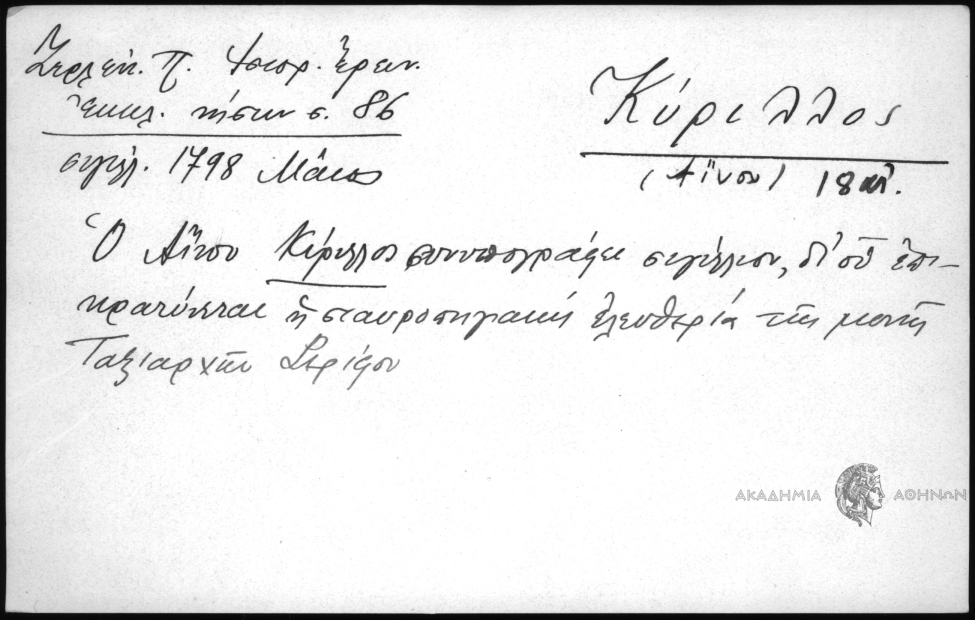 Ζερλέν. Π. Ἱστορ. Ἔρευν.
Ἐκκλ. νήσων σ. 86
σιγίλλ. 1798 Μάιος
Κύριλλος
(Αἴνου) 18 αἰ.
Ὁ Αἴνου Κύριλλος συνυπογράφει σιγίλλιον, δι' οὗ ἐπι-
κρατύνεται ἡ σταυροπηγιακή ἐλευθερία τῆς μονῆς
Ταξιαρχῶν Σερίφου
ΑΚΑΔΗΜΙΑ ΑΘΗΝΩΝ